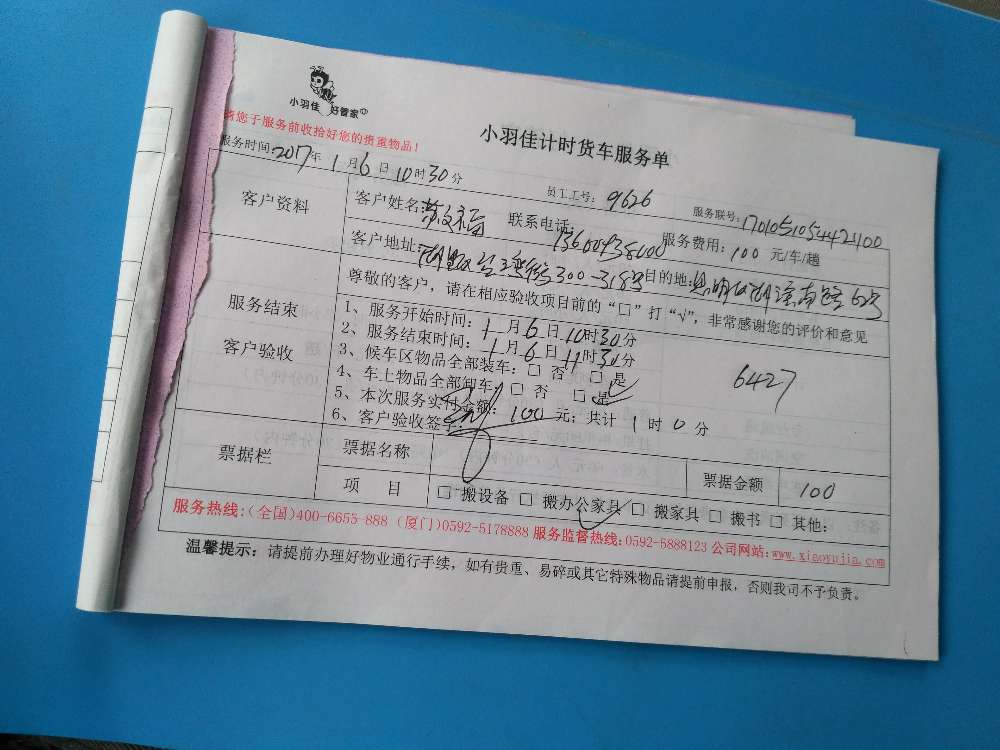 小羽佳 好管家
小羽佳计时货车服务单
请您于服务前收拾好您的贵重物品!
服务时间:2017年1月6日10时30分 员工工号: 9626 服务联号:1701051054421100
客户资料 客户姓名: 联系电话: 服务费用: 100 元/车/趟
客户地址: 300-318号 目的地:思明区湖滨南路62号
服务结束
客户验收
尊敬的客户, 请在相应验收项目前的“□”打“√”, 非常感谢您的评价和意见
1、服务开始时间: 1月6日10时30分
2、服务结束时间: 1月6日11时30分
3、候车区物品全部装车: □ 否 □ 是
4、车上物品全部卸车: □ 否 □ 是
5、本次服务实付金额: 100 元; 共计 1 时 0 分
6、客户验收签字:
6427
票据栏 票据名称 票据金额 100
项 目 □ 搬设备 □ 搬办公家具 □ 搬家具 □ 搬书 □ 其他:
服务热线:(全国)400-6655-888 (厦门)0592-5178888 服务监督热线:0592-5888123 公司网站:www.xiaoyujia.com
温馨提示: 请提前办理好物业通行手续, 如有贵重、易碎或其它特殊物品请提前申报, 否则我司不予负责。